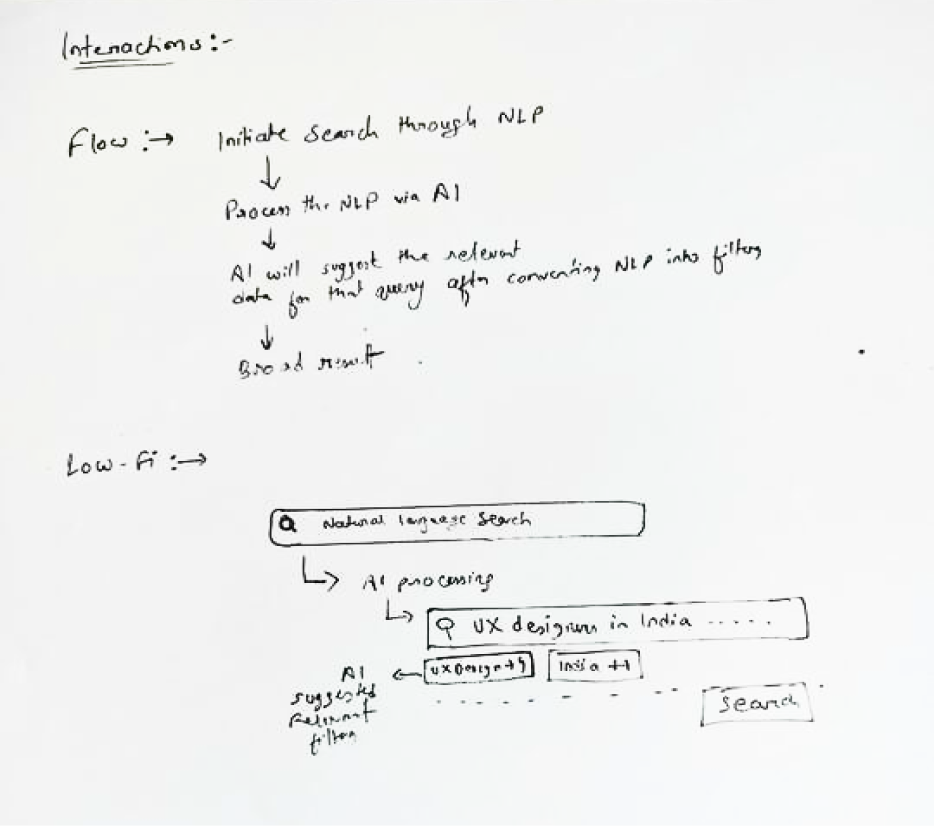 Interactions:-
Flow :→ Initiate Search through NLP
↓
Process the NLP via AI
↓
AI will suggest the relevant
data for that query after converting NLP into filters
↓
Broad result
Low-Fi :→
Natural language Search
AI processing
UX designers in India .....
UX Design +9
India +1
AI
suggested
Relevant
filters
Search